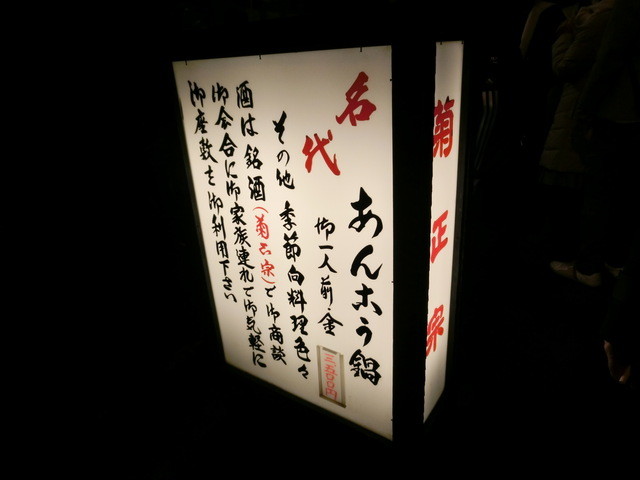 名代
あんこう鍋
御一人前・金
三五〇〇円
その他 季節向料理色々
酒は銘酒(菊正宗)で御商談
御会合に御家族連れで御気軽に
御座敷を御利用下さい
菊正宗